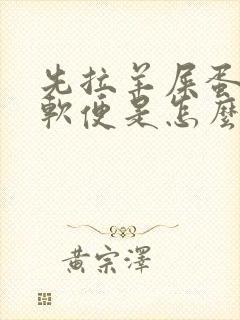 先拉羊屎蛋
軟便是怎麼
黃宗澤